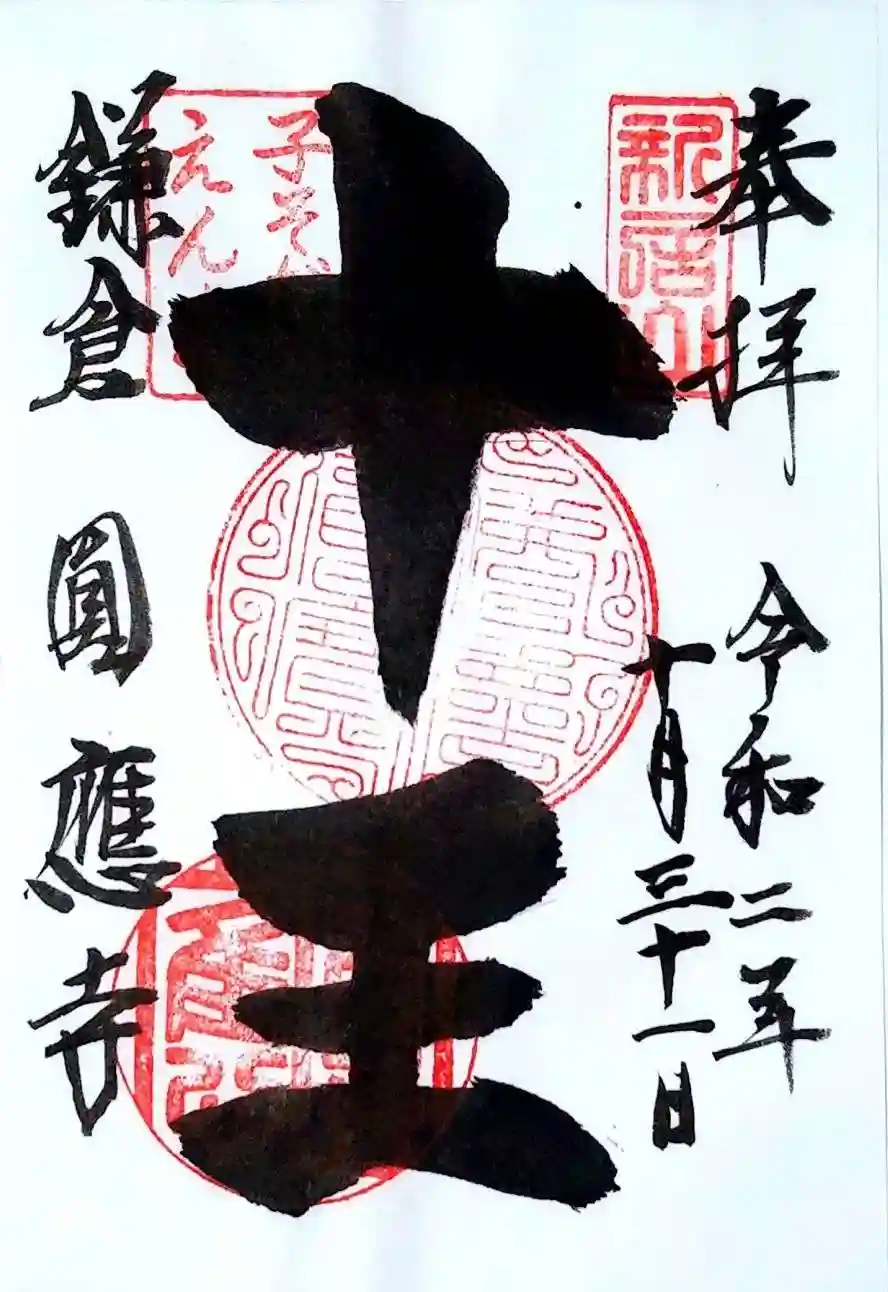 奉拝
令和二年
十月三十一日
新居山
十王
子そだ
えん
鎌倉 圓應寺